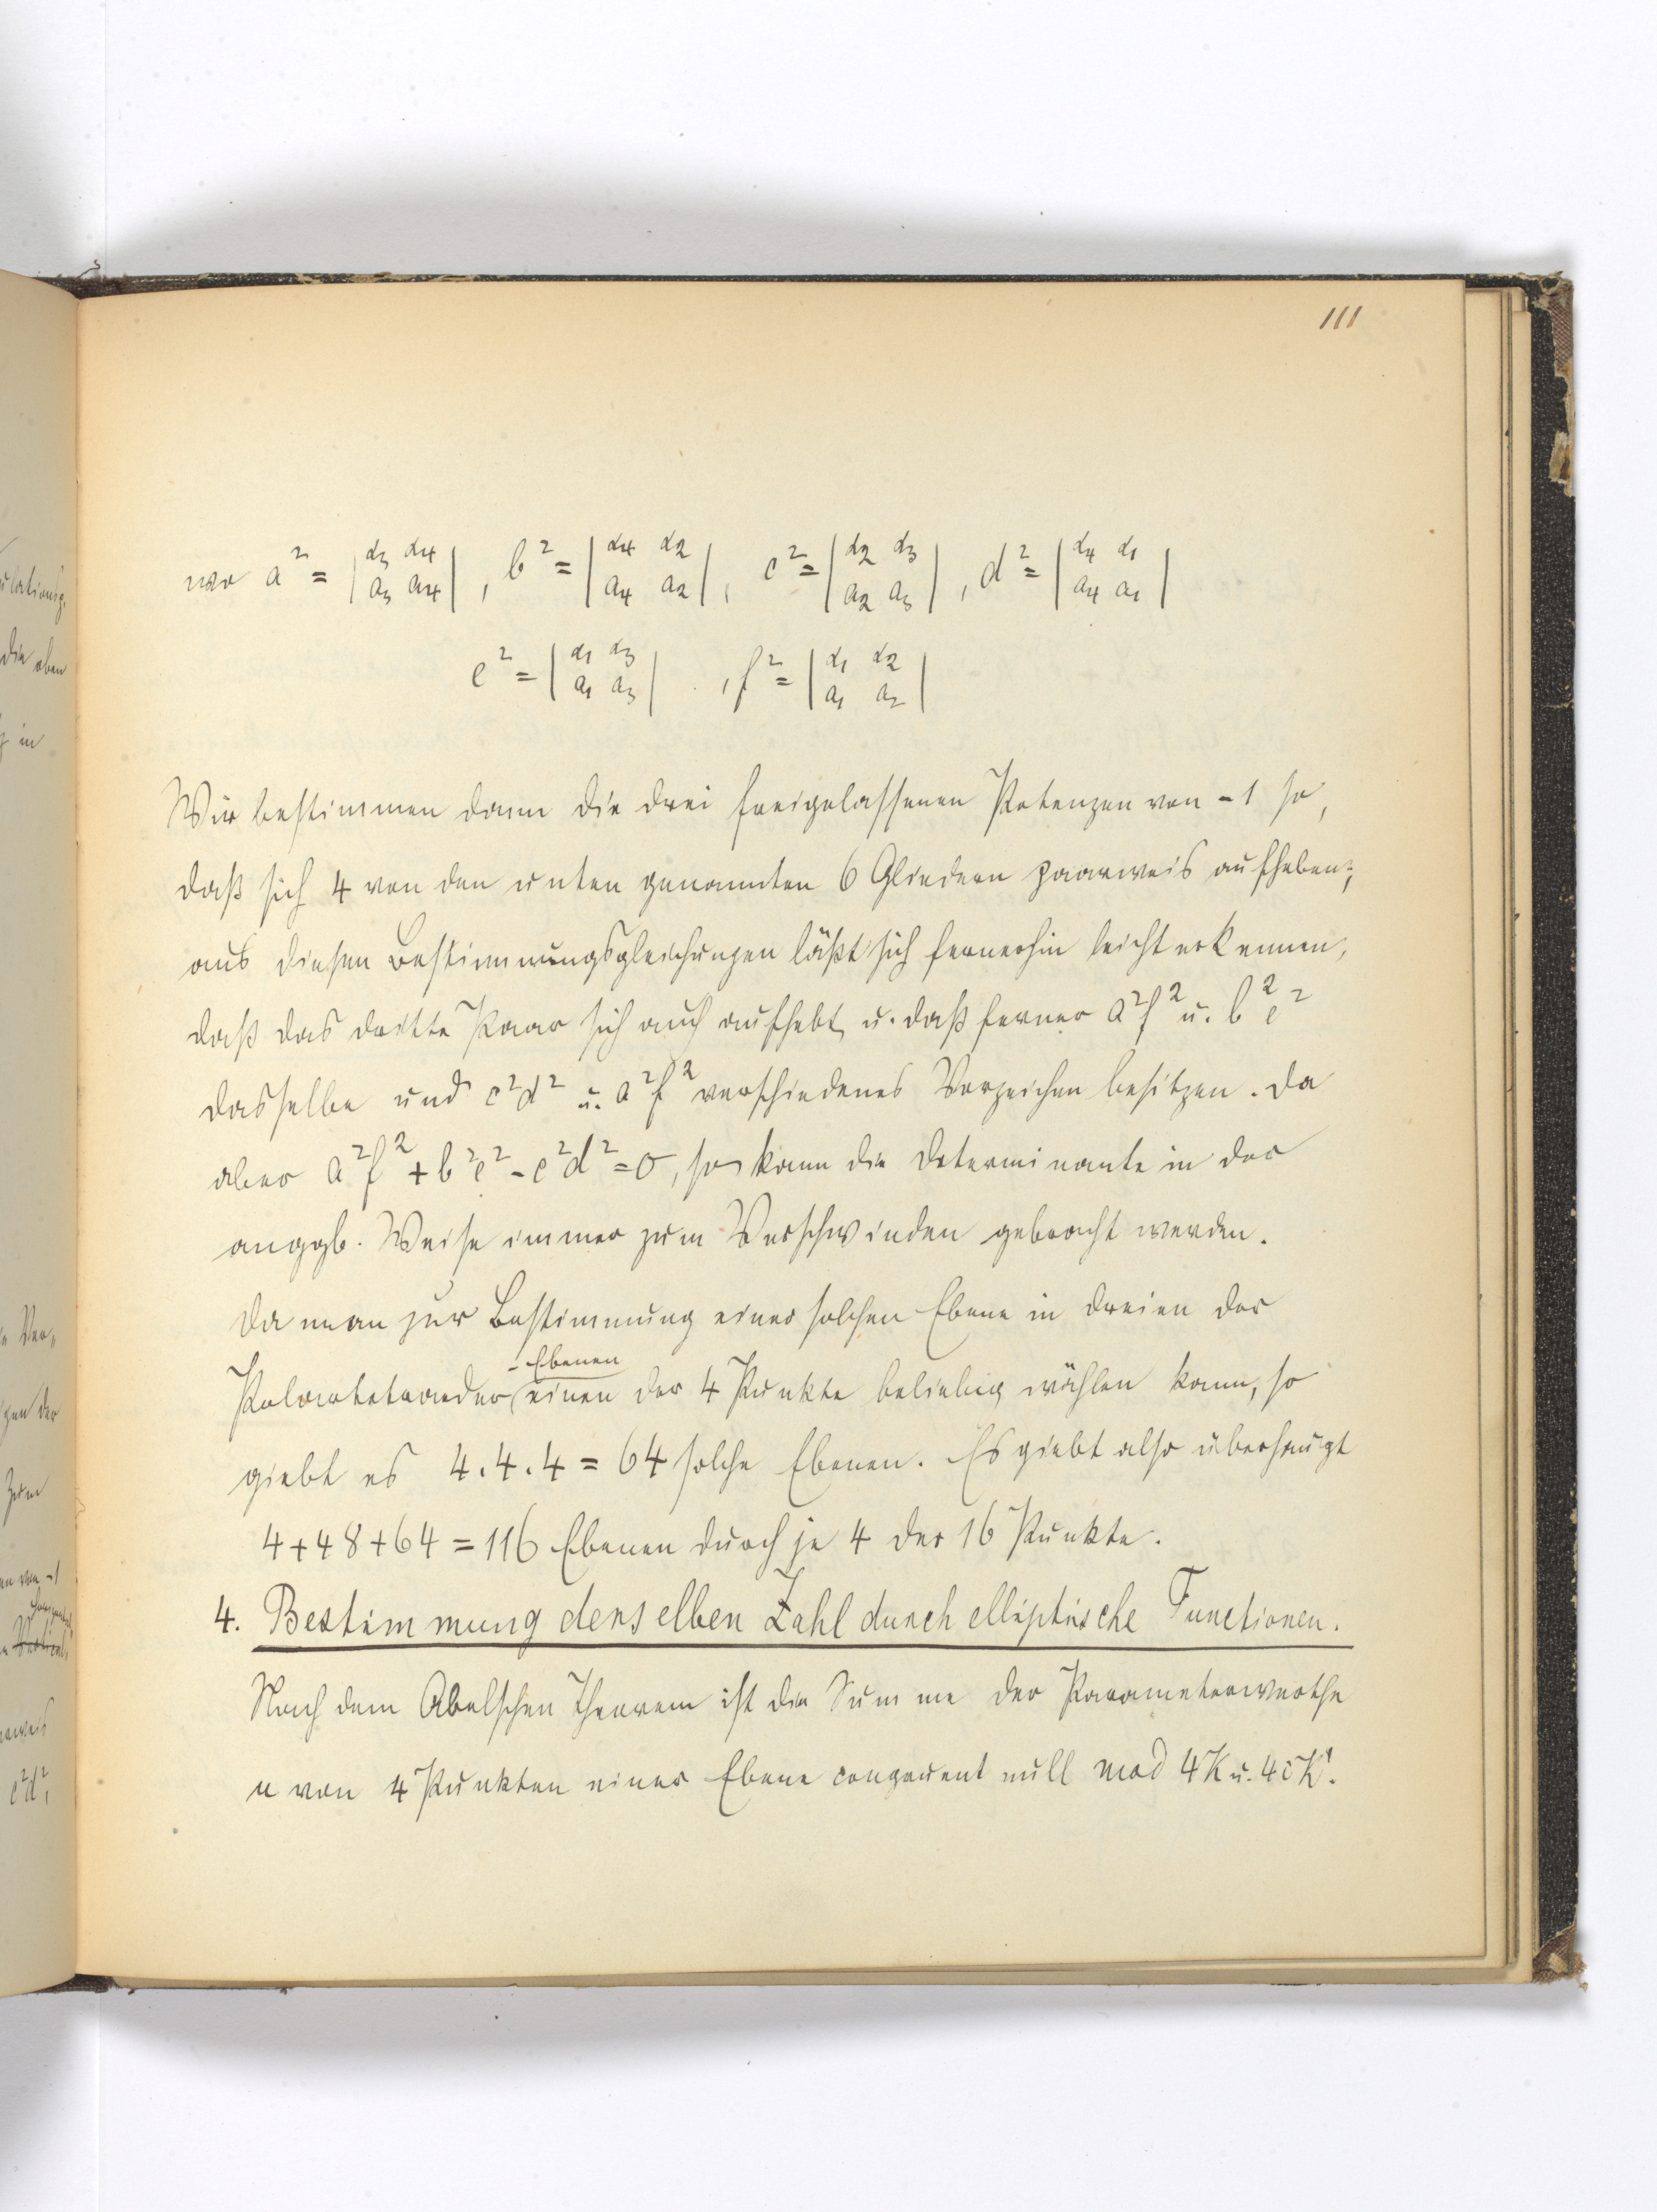 111
wo a² = | α₃ α₄ ; a₃ a₄ | , b² = | α₄ α₂ ; a₄ a₂ | , c² = | α₂ α₃ ; a₂ a₃ | , d² = | α₄ α₁ ; a₄ a₁ |
e² = | α₁ α₃ ; a₁ a₃ | , f² = | α₁ α₂ ; a₁ a₂ |
Wir bestimmen dann die drei freigelassenen Potenzen von -1 so,
daß sich 4 von den unten genannten 6 Gliedern paarweis aufheben;
aus diesen Bestimmungsgleichungen läßt sich fernerhin leicht erkennen,
daß das dritte Paar sich auch aufhebt u. daß ferner a²f² u. b²e²
dasselbe und c²d² u. a²f² verschiedenes Vorzeichen besitzen. Da
aber a²f² + b²e² - c²d² = 0, so kann die Determinante in der
anggb. Weise immer zum Verschwinden gebracht werden.
Da man zur Bestimmung einer solchen Ebene in dreien der
-Ebenen
Polartetraeder einen der 4 Punkte beliebig wählen kann, so
giebt es 4.4.4 = 64 solche Ebenen. Es giebt also überhaupt
4+48+64 = 116 Ebenen durch je 4 der 16 Punkte.
4. Bestimmung derselben Zahl durch elliptische Functionen.
Nach dem Abelschen Theorem ist die Summe der Parameterwerthe
u von 4 Punkten einer Ebene congruent null mod 4K u. 4iK'.